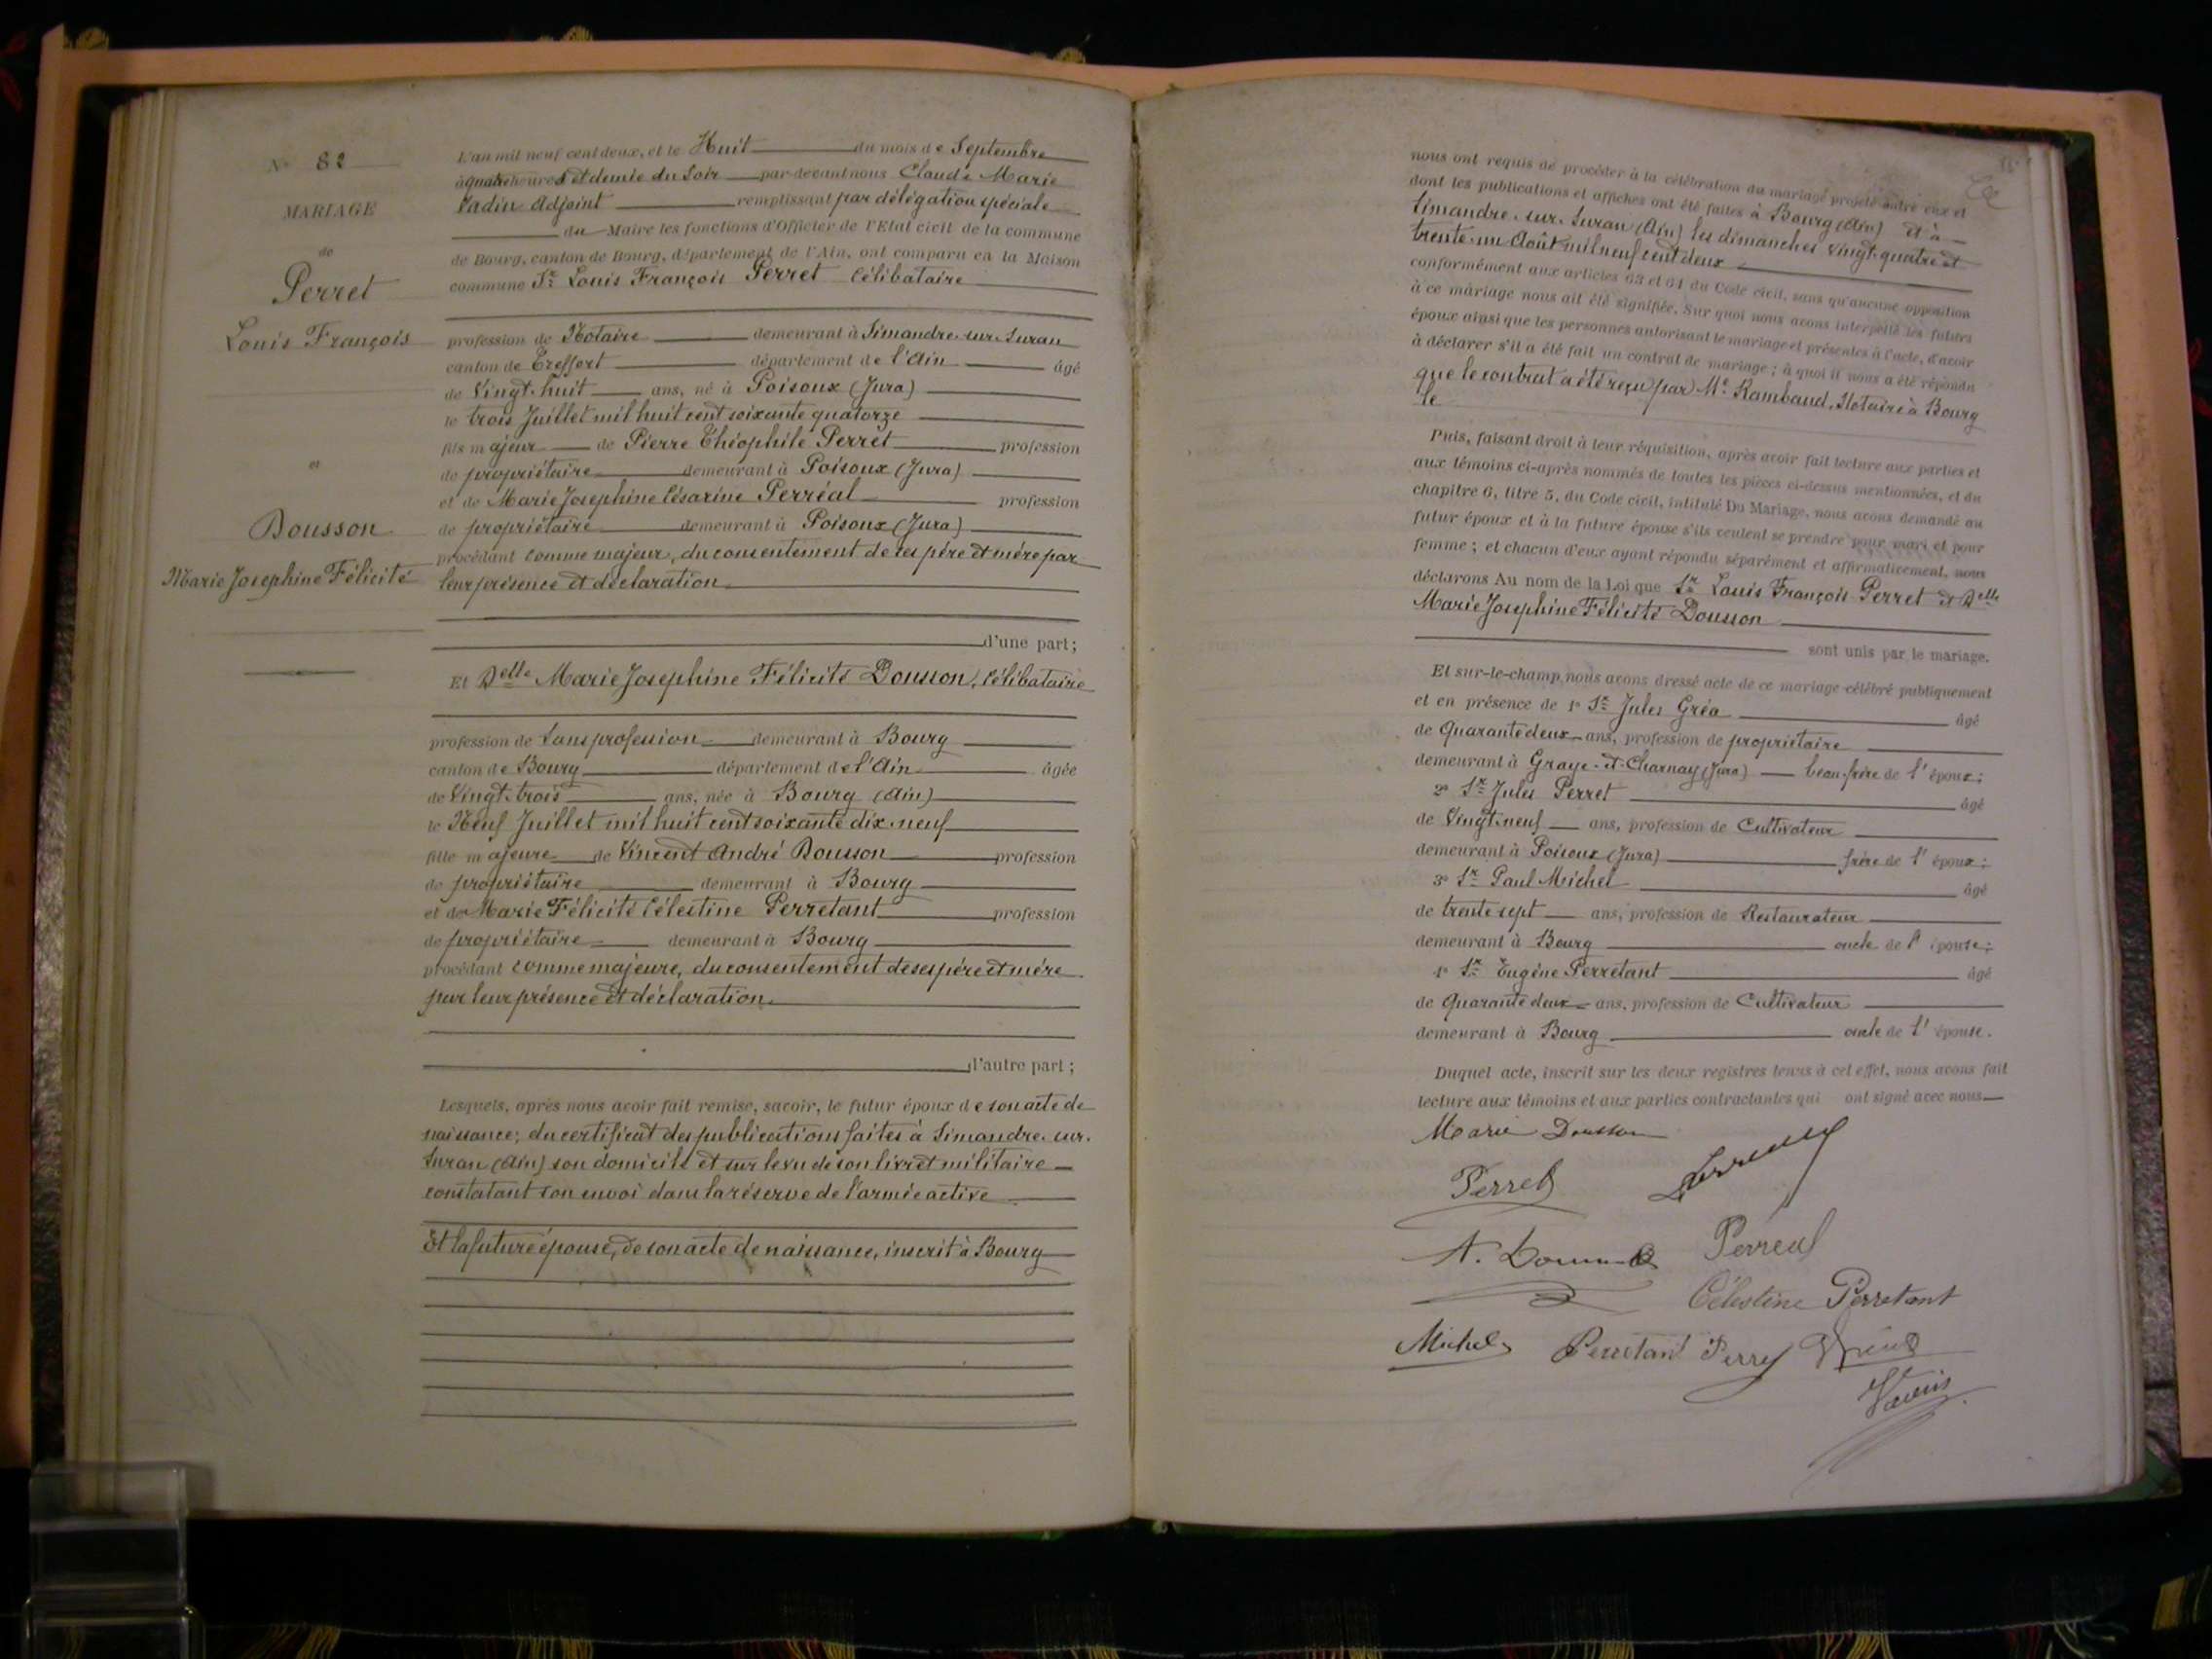 N° 82
MARIAGE
de
Perret
Louis François
et
Dousson
Marie Josephine Félicité
L'an mil neuf cent deux, et le Huit du mois de Septembre
à quatre heures et demie du Soir par-devant nous Claude Marie
Vadin Adjoint remplissant par délégation spéciale
du Maire les fonctions d'Officier de l'Etat civil de la commune
de Bourg, canton de Bourg, département de l'Ain, ont comparu en la Maison
commune Sr Louis François Perret Célibataire
profession de Notaire demeurant à Simandre-sur-Suran
canton de Treffort département de l'Ain âgé
de Vingt-huit ans, né à Poisoux (Jura)
le trois Juillet mil huit cent soixante quatorze
fils majeur de Pierre Théophile Perret profession
de propriétaire demeurant à Poisoux (Jura)
et de Marie Josephine Césarine Perréal profession
de propriétaire demeurant à Poisoux (Jura)
procédant comme majeur, du consentement de ses père et mère par
leur présence et déclaration
d'une part ;
Et Delle Marie Josephine Félicité Dousson, Célibataire
profession de Sans profession demeurant à Bourg
canton de Bourg département de l'Ain âgée
de Vingt-trois ans, née à Bourg (Ain)
le Neuf Juillet mil huit cent soixante dix-neuf
fille majeure de Vincent André Dousson profession
de propriétaire demeurant à Bourg
et de Marie Félicité Célestine Perretant profession
de propriétaire demeurant à Bourg
procédant comme majeure, du consentement de ses père et mère
par leur présence et déclaration.
d'autre part ;
Lesquels, après nous avoir fait remise, savoir, le futur époux de son acte de
naissance; du certificat des publications faites à Simandre-sur-
Suran (Ain) son domicile et sur le vu de son livret militaire
constatant son envoi dans la réserve de l'armée active
Et la future épouse, de son acte de naissance, inscrit à Bourg
nous ont requis de procéder à la célébration du mariage projeté entre eux et
dont les publications et affiches ont été faites à Bourg (Ain) et à
Simandre-sur-Suran (Ain) les dimanches vingt-quatre et
trente-un Août mil neuf cent deux
conformément aux articles 63 et 64 du Code civil, sans qu'aucune opposition
à ce mariage nous ait été signifiée. Sur quoi nous avons interpellé les futurs
époux ainsi que les personnes autorisant le mariage et présentes à l'acte, d'avoir
à déclarer s'il a été fait un contrat de mariage ; à quoi il nous a été répondu
que le contrat a été reçu par Me Rambaud, Notaire à Bourg
le
Puis, faisant droit à leur réquisition, après avoir fait lecture aux parties et
aux témoins ci-après nommés de toutes les pièces ci-dessus mentionnées, et du
chapitre 6, titre 5, du Code civil, intitulé Du Mariage, nous avons demandé au
futur époux et à la future épouse s'ils veulent se prendre pour mari et pour
femme ; et chacun d'eux ayant répondu séparément et affirmativement, nous
déclarons Au nom de la Loi que Sr Louis François Perret et Delle
Marie Josephine Félicité Dousson
sont unis par le mariage.
Et sur-le-champ, nous avons dressé acte de ce mariage célébré publiquement
et en présence de 1° Sr Jules Gréa âgé
de Quarante deux ans, profession de propriétaire
demeurant à Graye-et-Charnay (Jura) beau-frère de l'époux ;
2° Sr Jules Perret âgé
de Vingt-neuf ans, profession de Cultivateur
demeurant à Poisoux (Jura) frère de l'époux ;
3° Sr Paul Michel âgé
de trente sept ans, profession de Restaurateur
demeurant à Bourg oncle de l'épouse ;
4° Sr Eugène Perretant âgé
de Quarante deux ans, profession de Cultivateur
demeurant à Bourg oncle de l'épouse.
Duquel acte, inscrit sur les deux registres tenus à cel effet, nous avons fait
lecture aux témoins et aux parties contractantes qui ont signé avec nous
Marie Dousson
Perret
Perréal
Célestine Perretant
Michel Perretant Perret